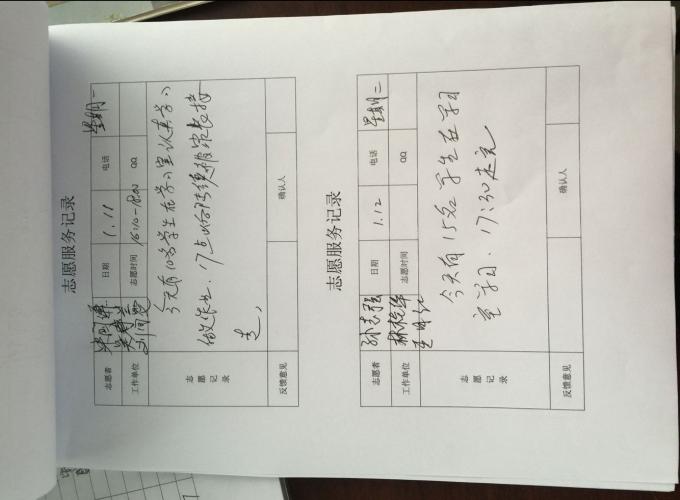 志愿服务记录
志愿者 日期 1.11 电话 星期一
工作单位 志愿时间 16:10-18:00 QQ
志愿记录
今天有10名学生在学习室认真学习
做作业. 17点以后陆续被家长接
走.
反馈意见 确认人
志愿服务记录
志愿者 孙志强 日期 1.12 电话 星期二
工作单位 志愿时间 QQ
志愿记录
今天有15名学生在学习
室学习. 17:30走完
反馈意见 确认人